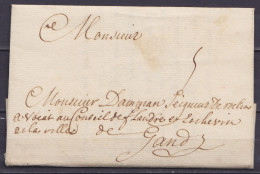 Monsieur
5
Monsieur Damman Seigneur de
avocat au Conseil de flandre et Eschevin
de la ville
de Gand